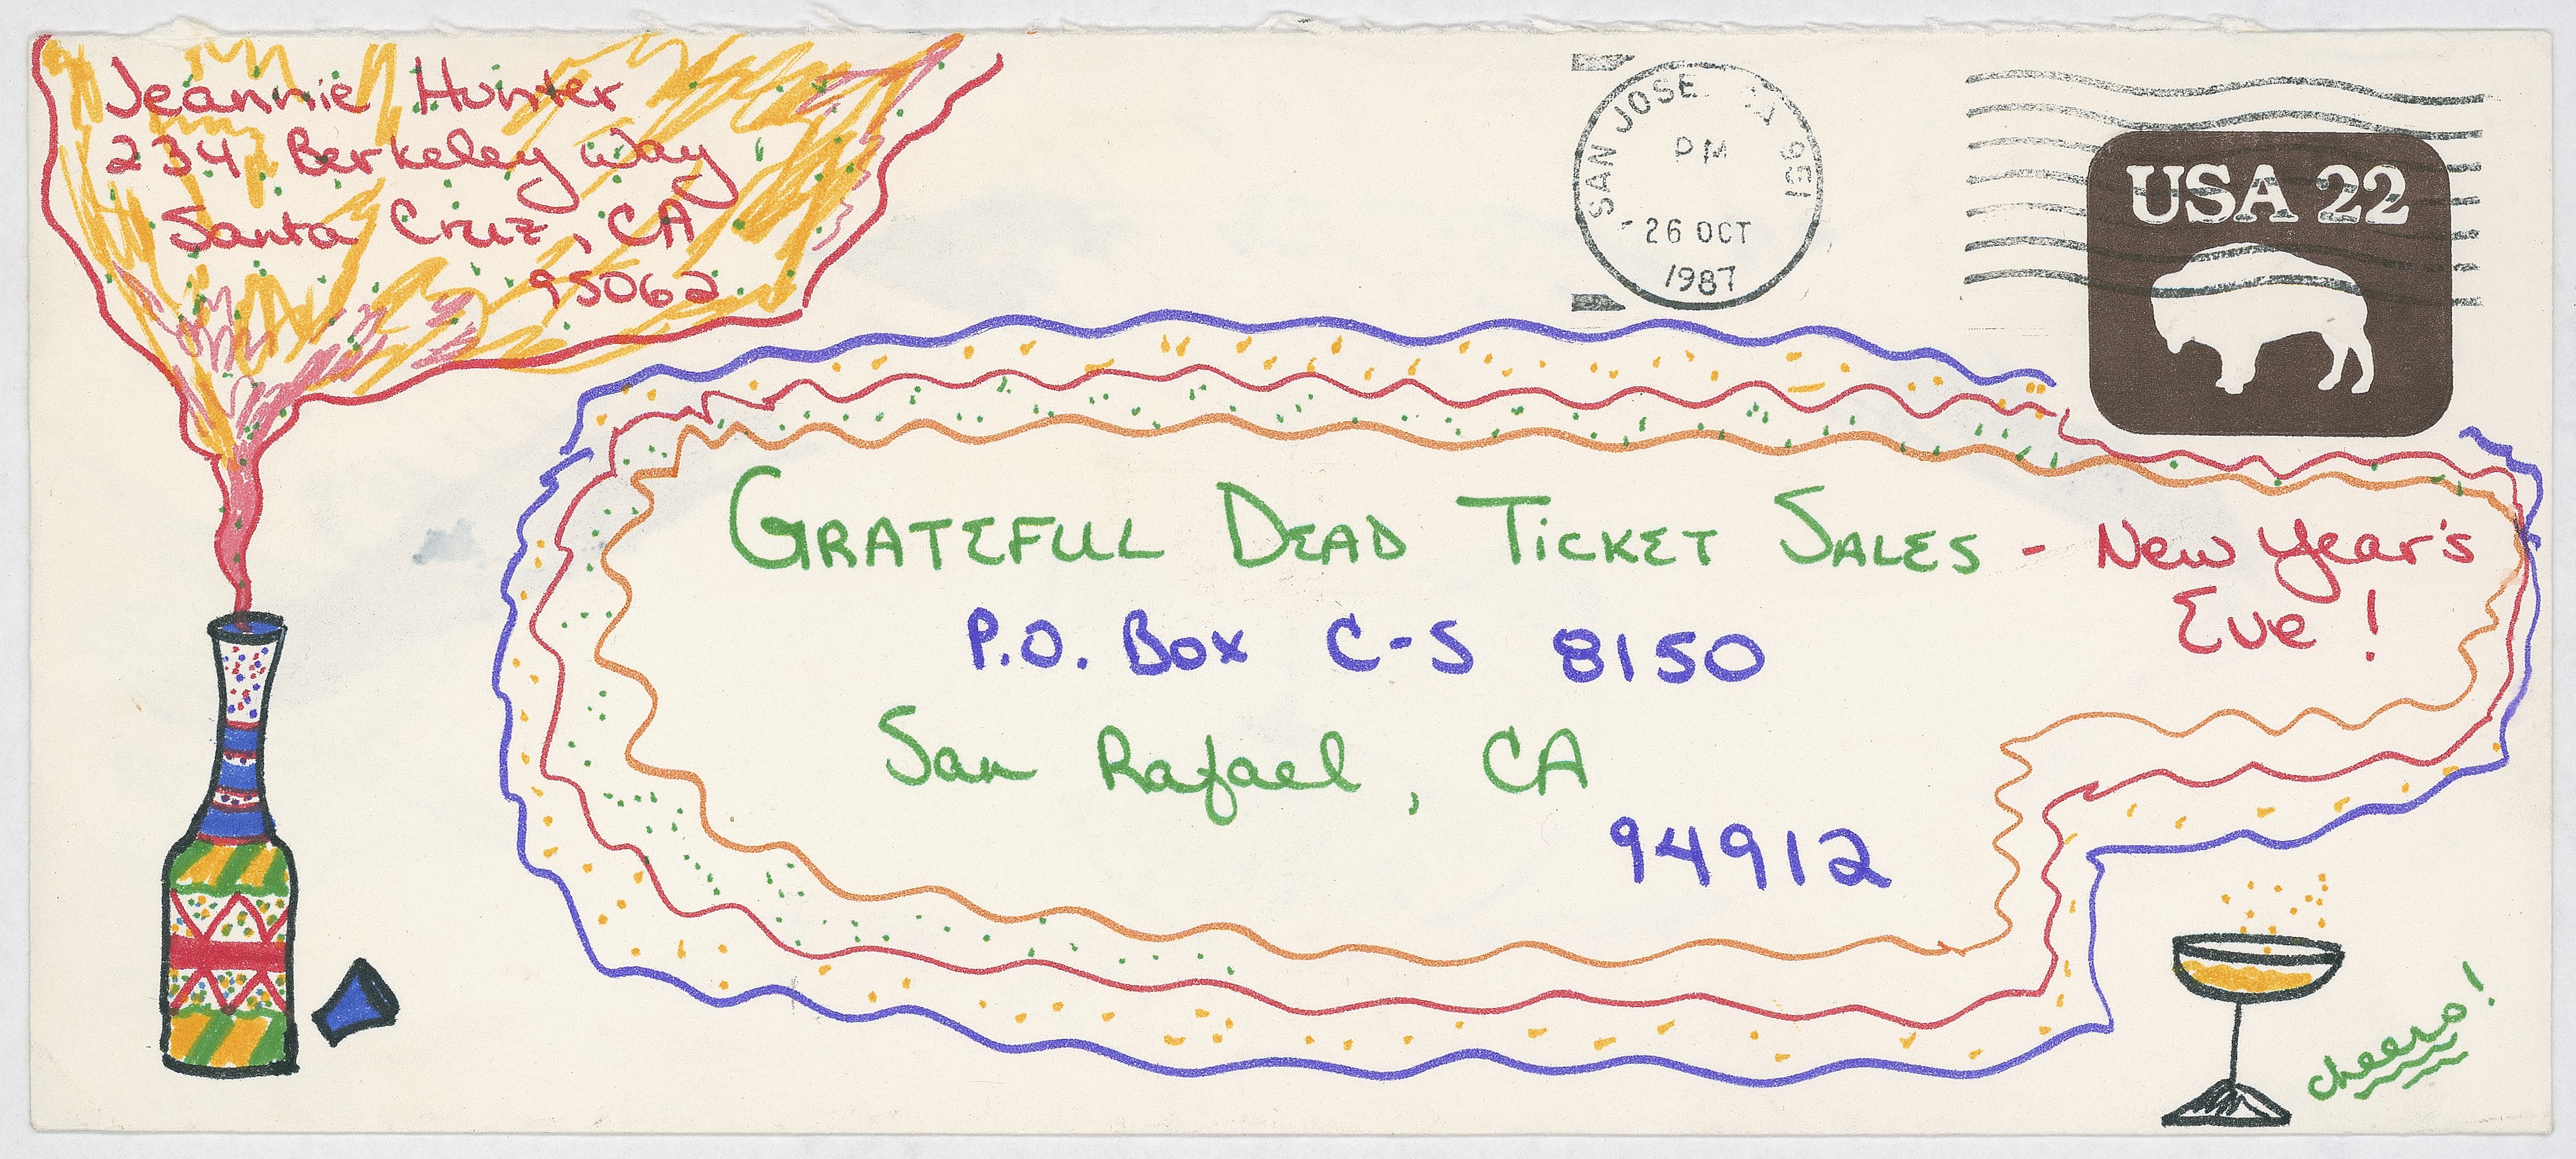 Jeannie Hunter
234 Berkeley Way
Santa Cruz, CA
95062
SAN JOSE CA 951
PM
26 OCT
1987
USA 22
GRATEFUL DEAD TICKET SALES - New Year's
Eve!
P.O. Box C-S 8150
San Rafael, CA
94912
cheers!